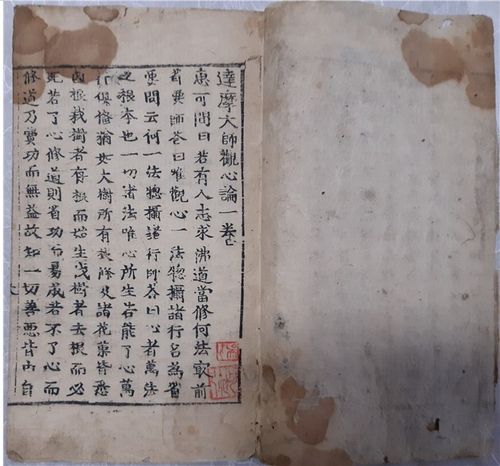 達摩大師觀心論一卷
惠可問曰若有人志求佛道當修何法㝡前
省要師答曰唯觀心一法惣攝諸行名爲省
要問云何一法惣攝諸行師答曰心者萬法
之根本也一切諸法唯心所生若能了心萬
行俱修猶如大樹所有枝條及諸花菓皆悉
因根栽樹者存根而始生伐樹者去根而必
死若了心修道則省功而易成若不了心而
修道乃費功而無益故知一切善惡皆由自